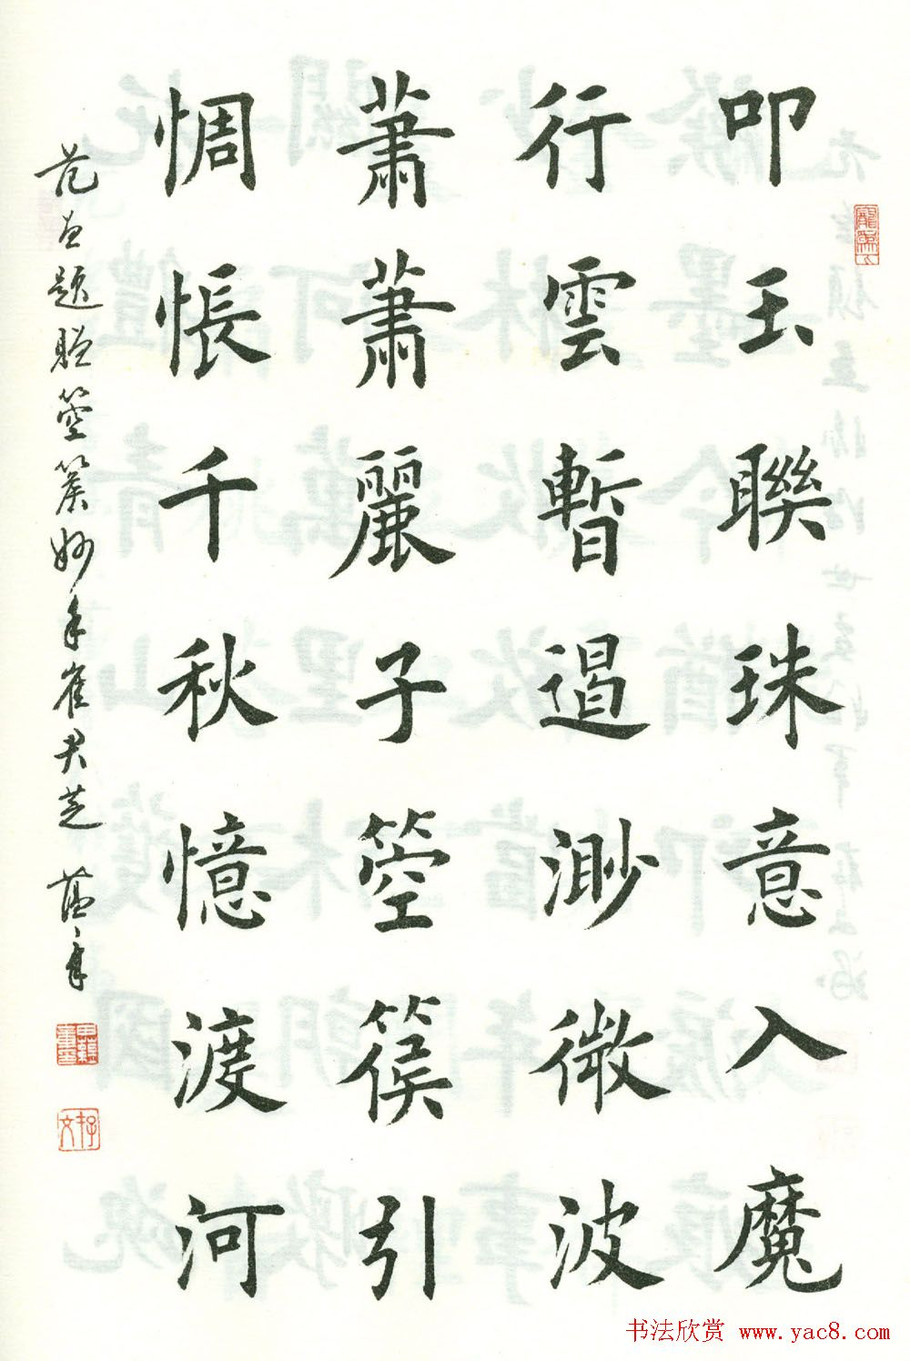 叩玉聯珠意入魔
行雲暫遏渺微波
蕭蕭麗子箜篌引
惆悵千秋憶渡河
范題贈箜篌妙手崔君芝 蘊章
书法欣赏 www.yac8.com